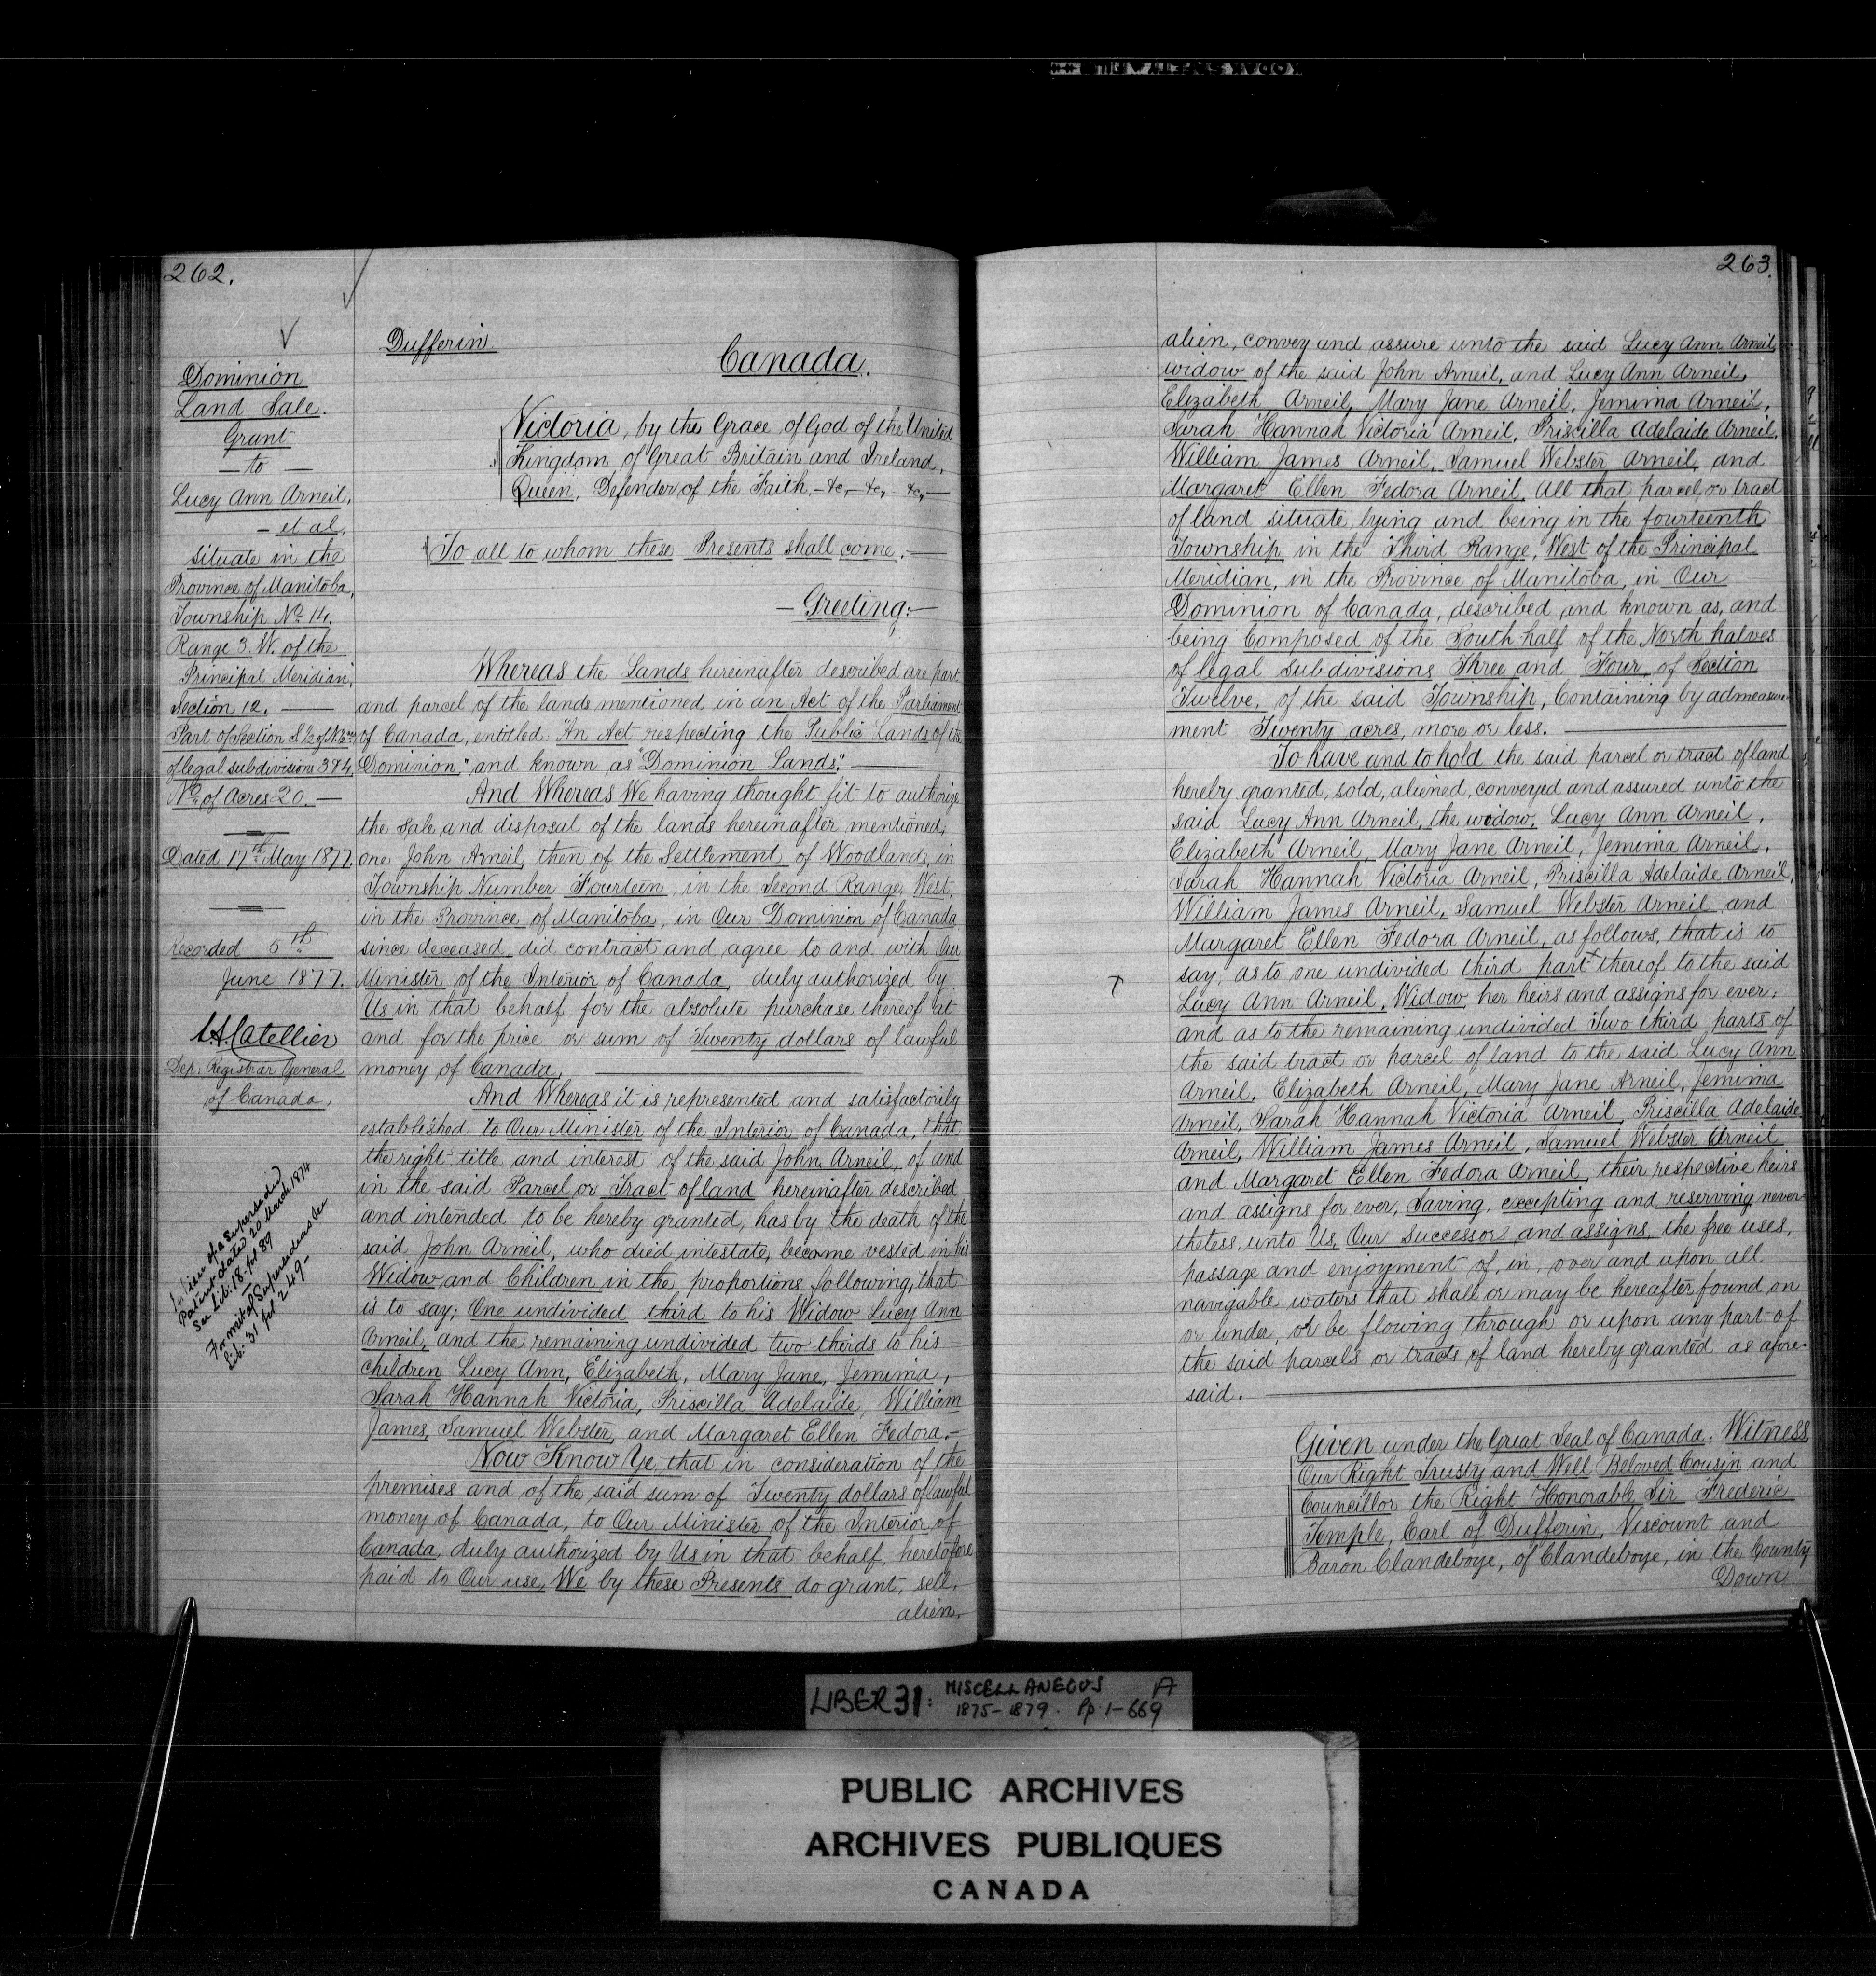 262.
Dominion
Land Sale.
Grant
— to —
Lucy Ann Arneil,
- et al,
situate in the
Province of Manitoba,
Township No. 14,
Range 3. W. of the
Principal Meridian,
Section 12. —
Part of Section S ½ of N ½
of legal subdivisions 3 & 4,
No. of Acres 20. —
Dated 17th May 1877.
Recorded 5th
June 1877.
L.A. Catellier
Dep. Registrar General
of Canada.
In lieu of a Superseded
Patent dated 20 March 1874
See Lib: 18 fol 89
For recital Supersedeas See
Lib: 31 fol 249-
Dufferin
Canada.
Victoria, by the Grace of God of the United
Kingdom of Great Britain and Ireland,
Queen, Defender of the Faith, - &c, - &c, - &c, —
To all to whom these Presents shall come; —
— Greeting: —
Whereas the Lands hereinafter described are part
and parcel of the lands mentioned in an Act of the Parliament
of Canada, entitled: "An Act respecting the Public Lands of the
Dominion," and known as "Dominion Lands." —
And Whereas We having thought fit to authorize
the sale and disposal of the lands hereinafter mentioned,
one John Arneil, then of the Settlement of Woodlands, in
Township Number Fourteen, in the Second Range, West,
in the Province of Manitoba, in Our Dominion of Canada
since deceased, did contract and agree to and with Our
Minister of the Interior of Canada, duly authorized by
Us in that behalf for the absolute purchase thereof at
and for the price or sum of Twenty dollars of lawful
money of Canada, —
And Whereas it is represented and satisfactorily
established to Our Minister of the Interior of Canada, that
the right title and interest of the said John Arneil, of and
in the said Parcel or Tract of land hereinafter described
and intended to be hereby granted, has by the death of the
said John Arneil, who died intestate, become vested in his
Widow and Children in the proportions following, that
is to say; One undivided third to his Widow Lucy Ann
Arneil, and the remaining undivided two thirds to his
children Lucy Ann, Elizabeth, Mary Jane, Jemima,
Sarah Hannah Victoria, Priscilla Adelaide, William
James, Samuel Webster, and Margaret Ellen Fedora. —
Now Know Ye, that in consideration of the
premises and of the said sum of Twenty dollars of lawful
money of Canada, to Our Minister of the Interior of
Canada, duly authorized by Us in that behalf, heretofore
paid to Our use, We by these Presents do grant, sell,
alien,
263.
alien, convey and assure unto the said Lucy Ann Arneil,
widow of the said John Arneil, and Lucy Ann Arneil,
Elizabeth Arneil, Mary Jane Arneil, Jemima Arneil,
Sarah Hannah Victoria Arneil, Priscilla Adelaide Arneil,
William James Arneil, Samuel Webster Arneil, and
Margaret Ellen Fedora Arneil, All that parcel or tract
of land situate, lying and being in the fourteenth
Township in the Third Range, West of the Principal
Meridian, in the Province of Manitoba, in Our
Dominion of Canada, described and known as, and
being Composed of the South half of the North halves
of legal subdivisions Three and Four, of Section
Twelve, of the said Township, Containing by admeasure-
ment Twenty acres, more or less. —
To have and to hold the said parcel or tract of land
hereby granted, sold, aliened, conveyed and assured unto the
said Lucy Ann Arneil, the widow, Lucy Ann Arneil,
Elizabeth Arneil, Mary Jane Arneil, Jemima Arneil,
Sarah Hannah Victoria Arneil, Priscilla Adelaide Arneil,
William James Arneil, Samuel Webster Arneil and
Margaret Ellen Fedora Arneil, as follows, that is to
say, as to one undivided third part thereof to the said
Lucy Ann Arneil, Widow, her heirs and assigns for ever;
and as to the remaining undivided Two third parts of
the said tract or parcel of land to the said Lucy Ann
Arneil, Elizabeth Arneil, Mary Jane Arneil, Jemima
Arneil, Sarah Hannah Victoria Arneil, Priscilla Adelaide
Arneil, William James Arneil, Samuel Webster Arneil
and Margaret Ellen Fedora Arneil, their respective heirs
and assigns for ever, saving, excepting and reserving never-
theless, unto Us, Our Successors and assigns, the free uses,
passage and enjoyment of, in, over and upon all
navigable waters that shall or may be hereafter found on
or under, or be flowing through or upon any part of
the said parcels or tracts of land hereby granted as afore-
said. —
Given under the Great Seal of Canada; Witness
Our Right Trusty and Well Beloved Cousin and
Councillor the Right Honorable Sir Frederic
Temple, Earl of Dufferin, Viscount and
Baron Clandeboye, of Clandeboye, in the County
Down
LIBER 31: MISCELLANEOUS A
1875-1879. Pp. 1-669
PUBLIC ARCHIVES
ARCHIVES PUBLIQUES
CANADA